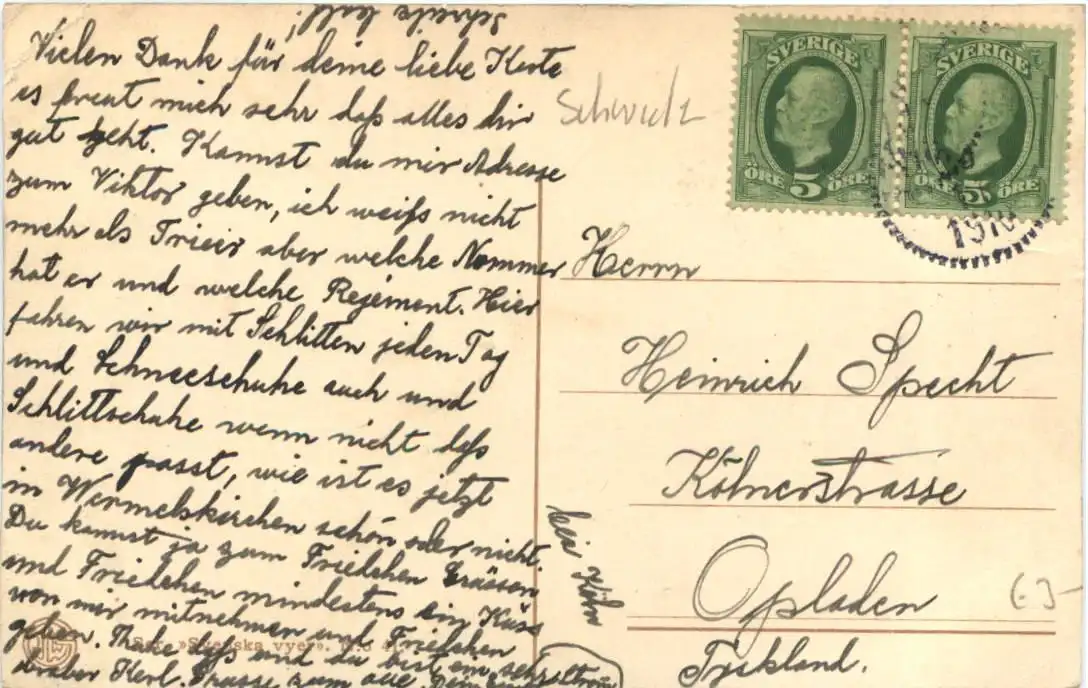 Vielen Dank für deine liebe Kerte
es freut mich sehr daß alles dir
gut geht. Kannst du mir Adresse
zum Viktor geben, ich weiß nicht
mehr als Trieir aber welche Nommer
hat er und welche Regiment. Hier
fahren wir mit Schlitten jeden Tag
und Schneeschuhe auch und
Schlittschuhe wenn nicht daß
andere passt, wie ist es jetzt
in Wermelskirchen schön oder nicht.
Du kannst ja zum Frielchen Grüssen
und Frielchen mindestens ein Küss
von mir mitnehmen und Frielchen
geben. daß und du bist ein sehr
Kerl. zum
SVERIGE
ÖRE 5 ÖRE
SVERIGE
ÖRE 5 ÖRE
Herrn
Heinrich Specht
Kölnerstrasse
Opladen
Tyskland.
bei Köhn